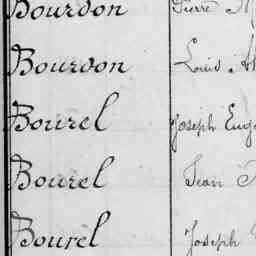 Bourdon Pierre
Bourdon Louis
Bourel Joseph
Bourel Jean
Bourel Joseph